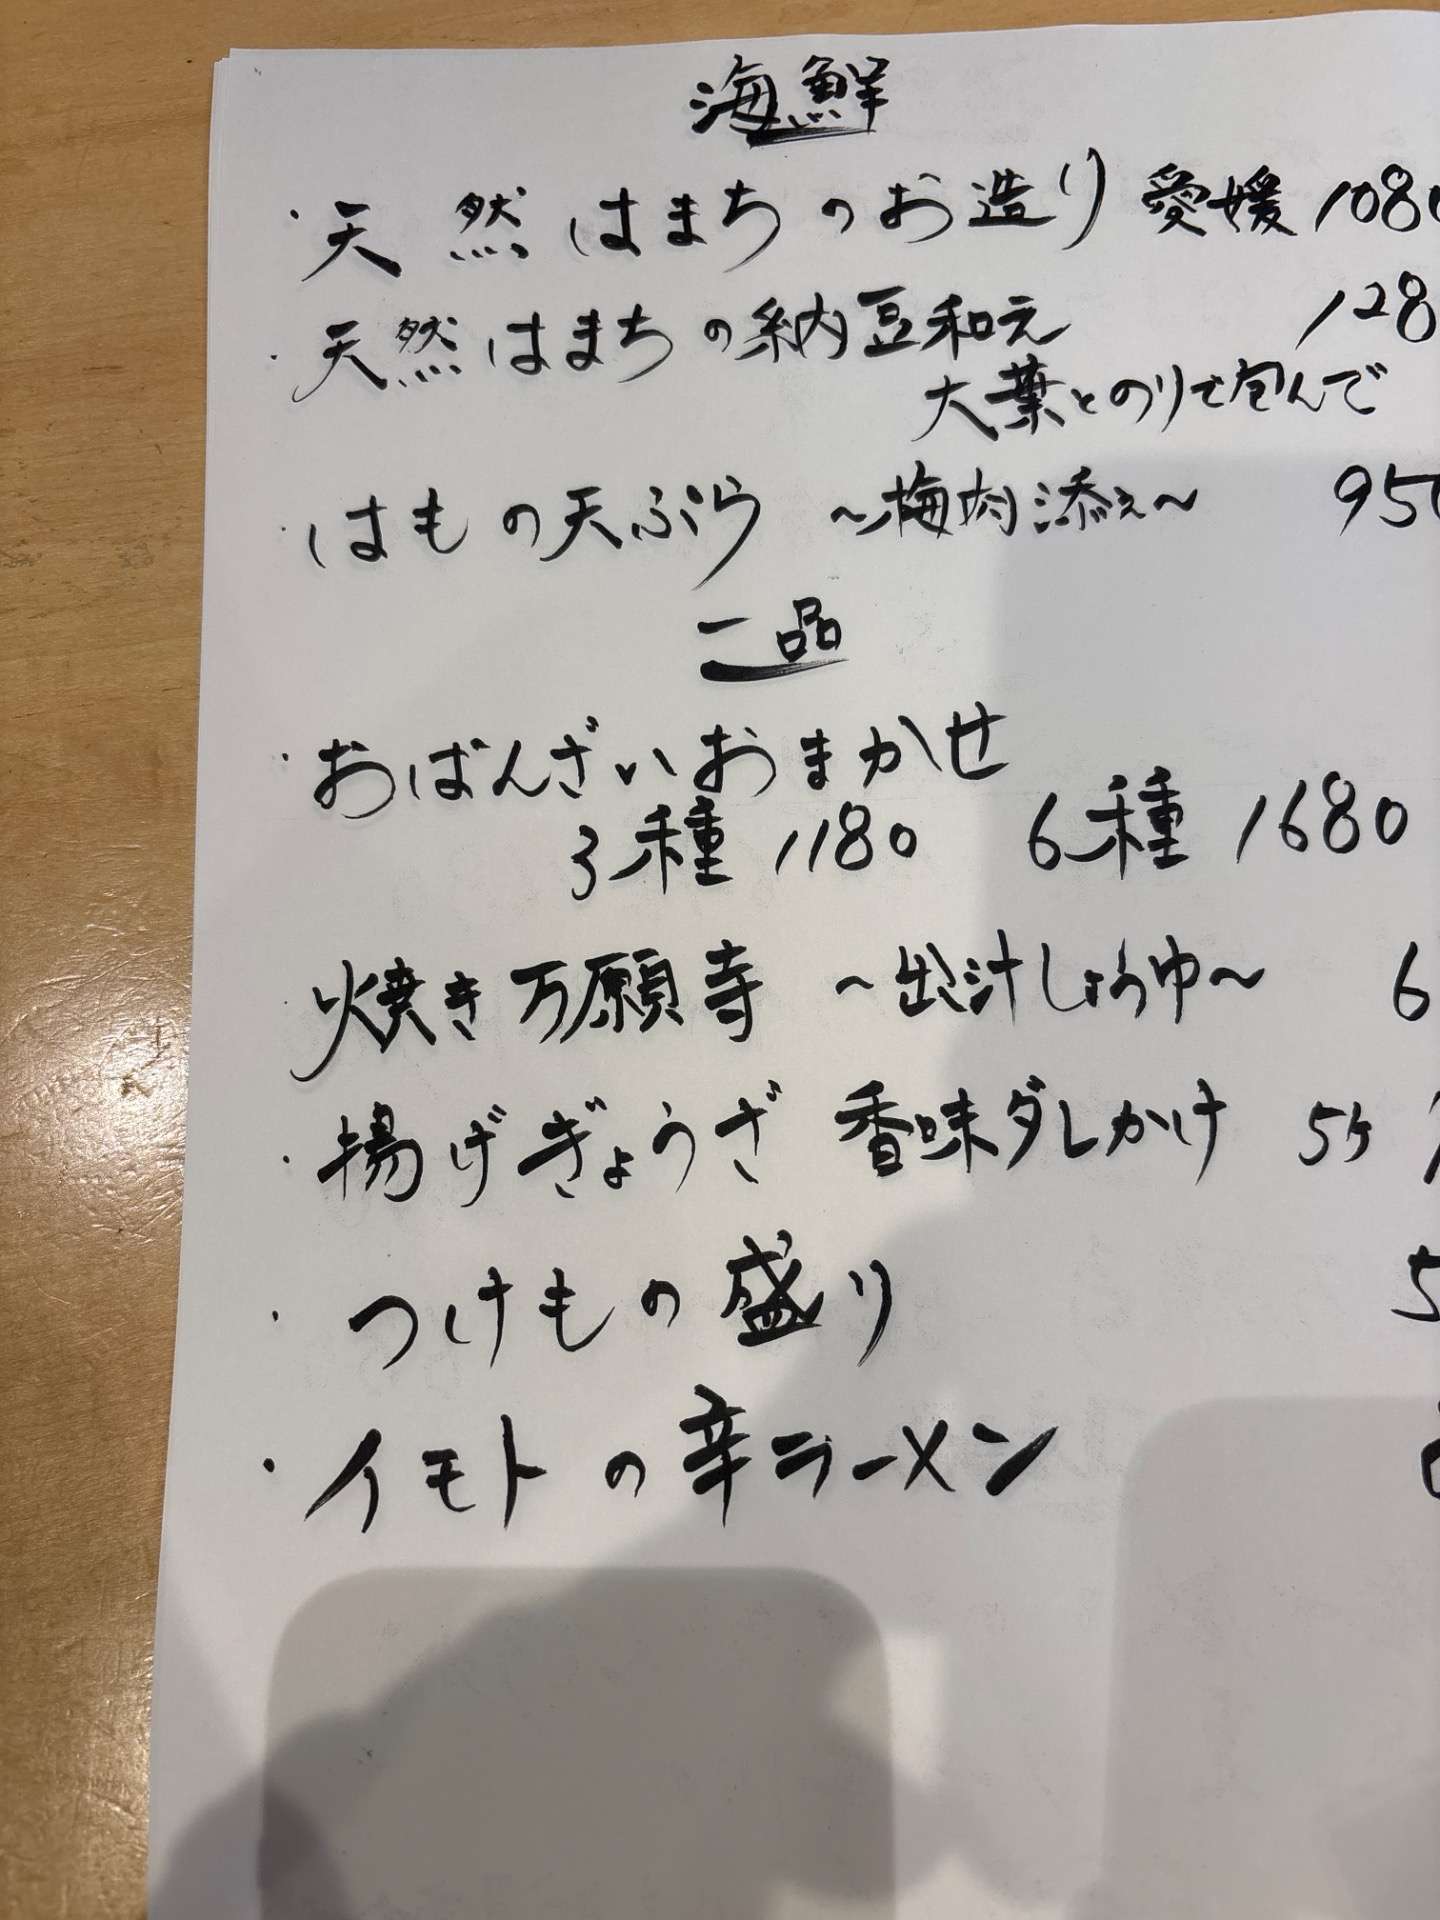 海鮮
・天然はまちのお造り 愛媛 1080
・天然はまちの納豆和え 128
大葉とのりで包んで
・はもの天ぷら ～梅肉添え～ 950
一品
・おばんざいおまかせ
3種 1180 6種 1680
・焼き万願寺 ～出汁しょうゆ～ 6
・揚げぎょうざ 香味ダレかけ 5ケ
・つけもの盛り 5
・イモトの辛ラーメン